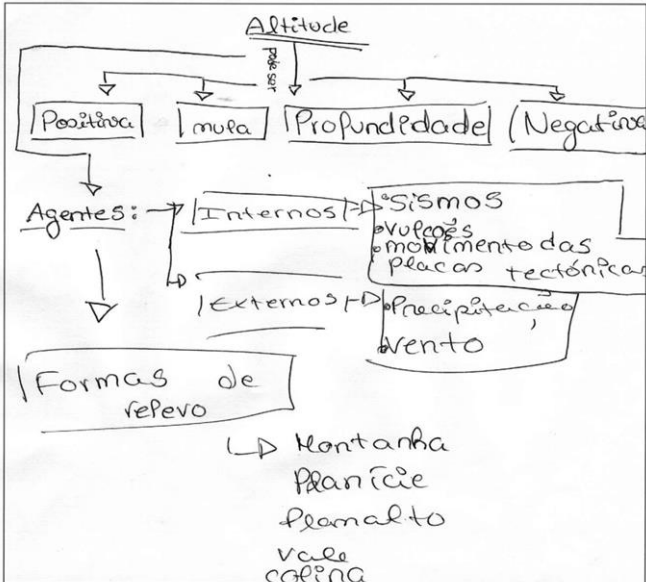 Altitude
pode ser
Positiva nula Profundidade Negativa
Agentes: Internos Sismos
vulcões
movimento das
placas tectónicas
Externos Precipitação,
vento
Formas de
relevo
Montanha
Planície
Planalto
vale
colina